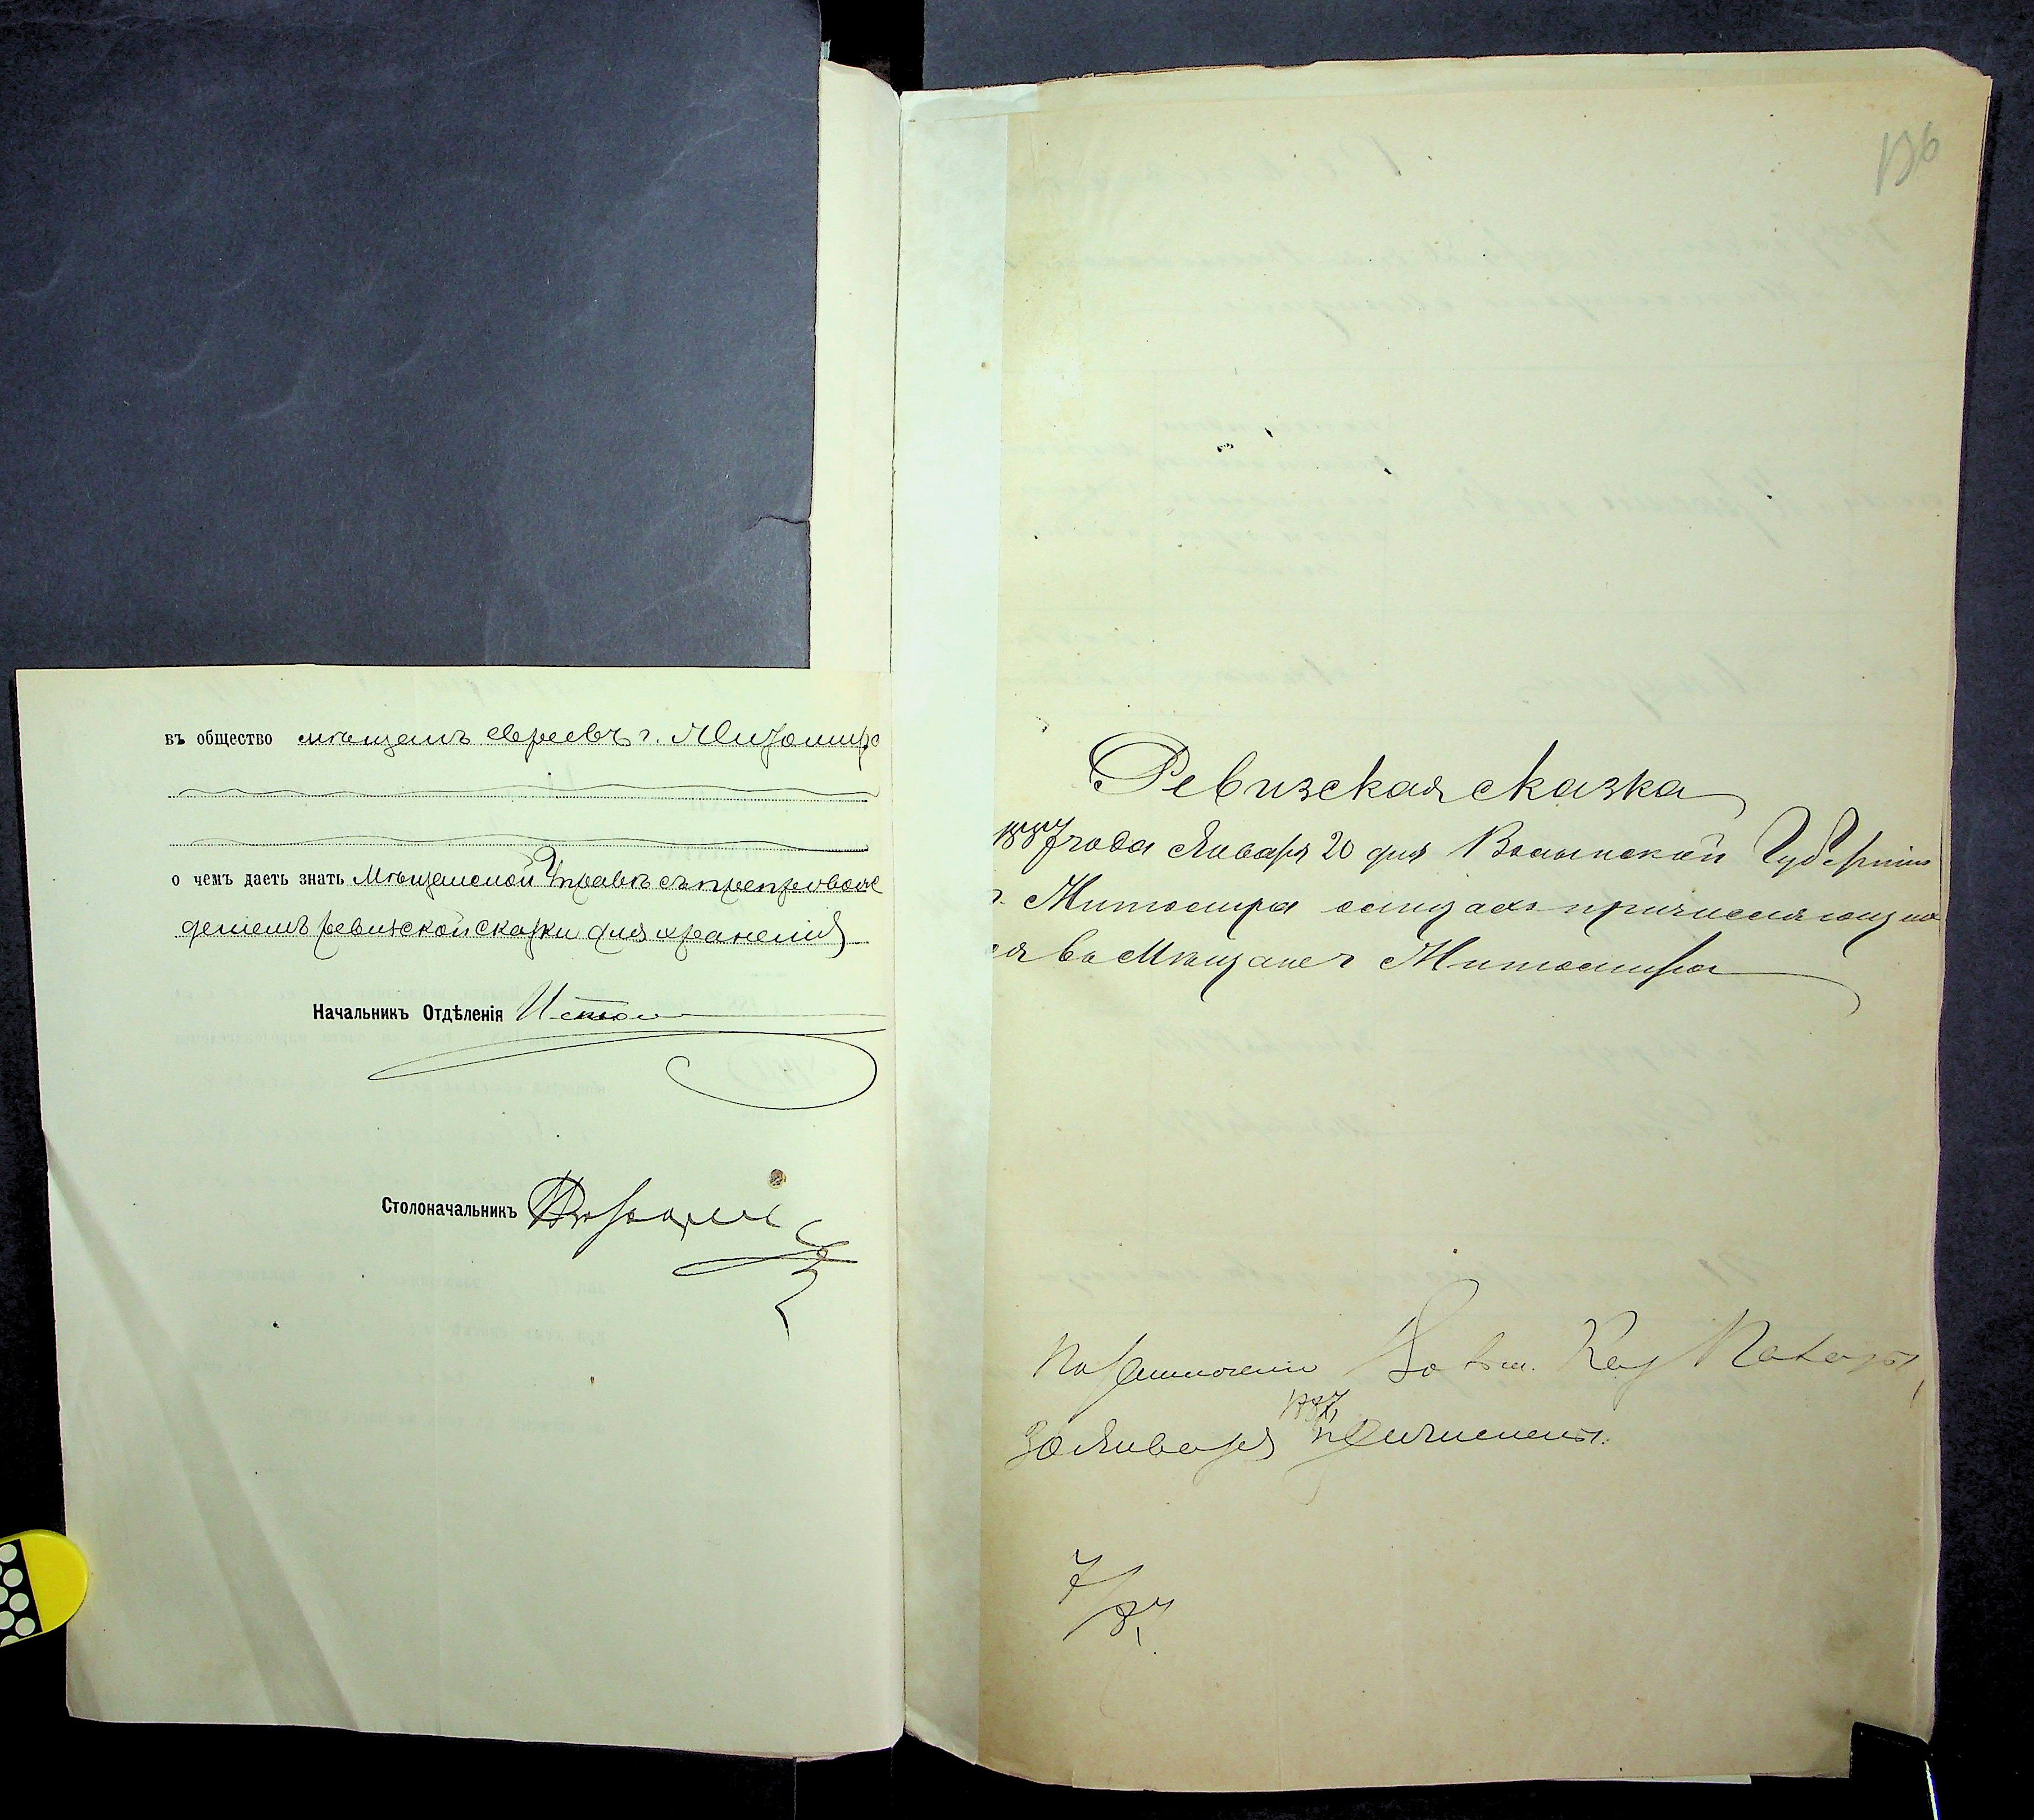 въ общество мѣщанъ евреевъ г. Житомира
о чемъ даетъ знать Мѣщанской Управѣ съ препровож
деніемъ ревизской сказки для храненія
Начальникъ Отдѣленія
Столоначальникъ
136
Ревизская сказка
1887 года Января 20 дня Волынской Губерніи
г. Житомира о лицахъ причисляющих
ся въ Мѣщане г Житомира
По Каз Палаты
30 Января 1887 причислены.
7/87